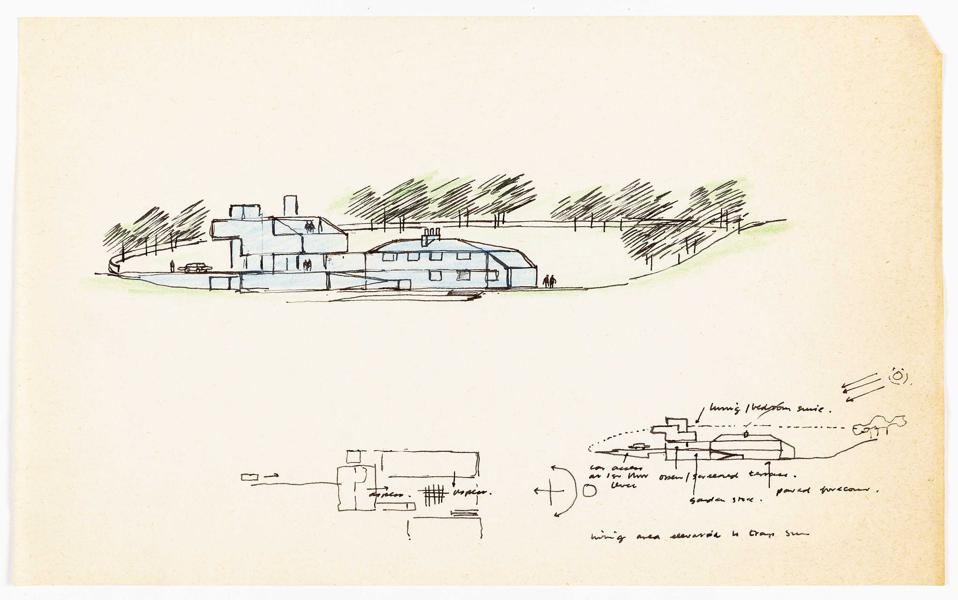 living / bedroom suite.
car access
at 1st floor
level
open / screened terrace.
garden store.
paved forecourt.
living area elevated to trap sun